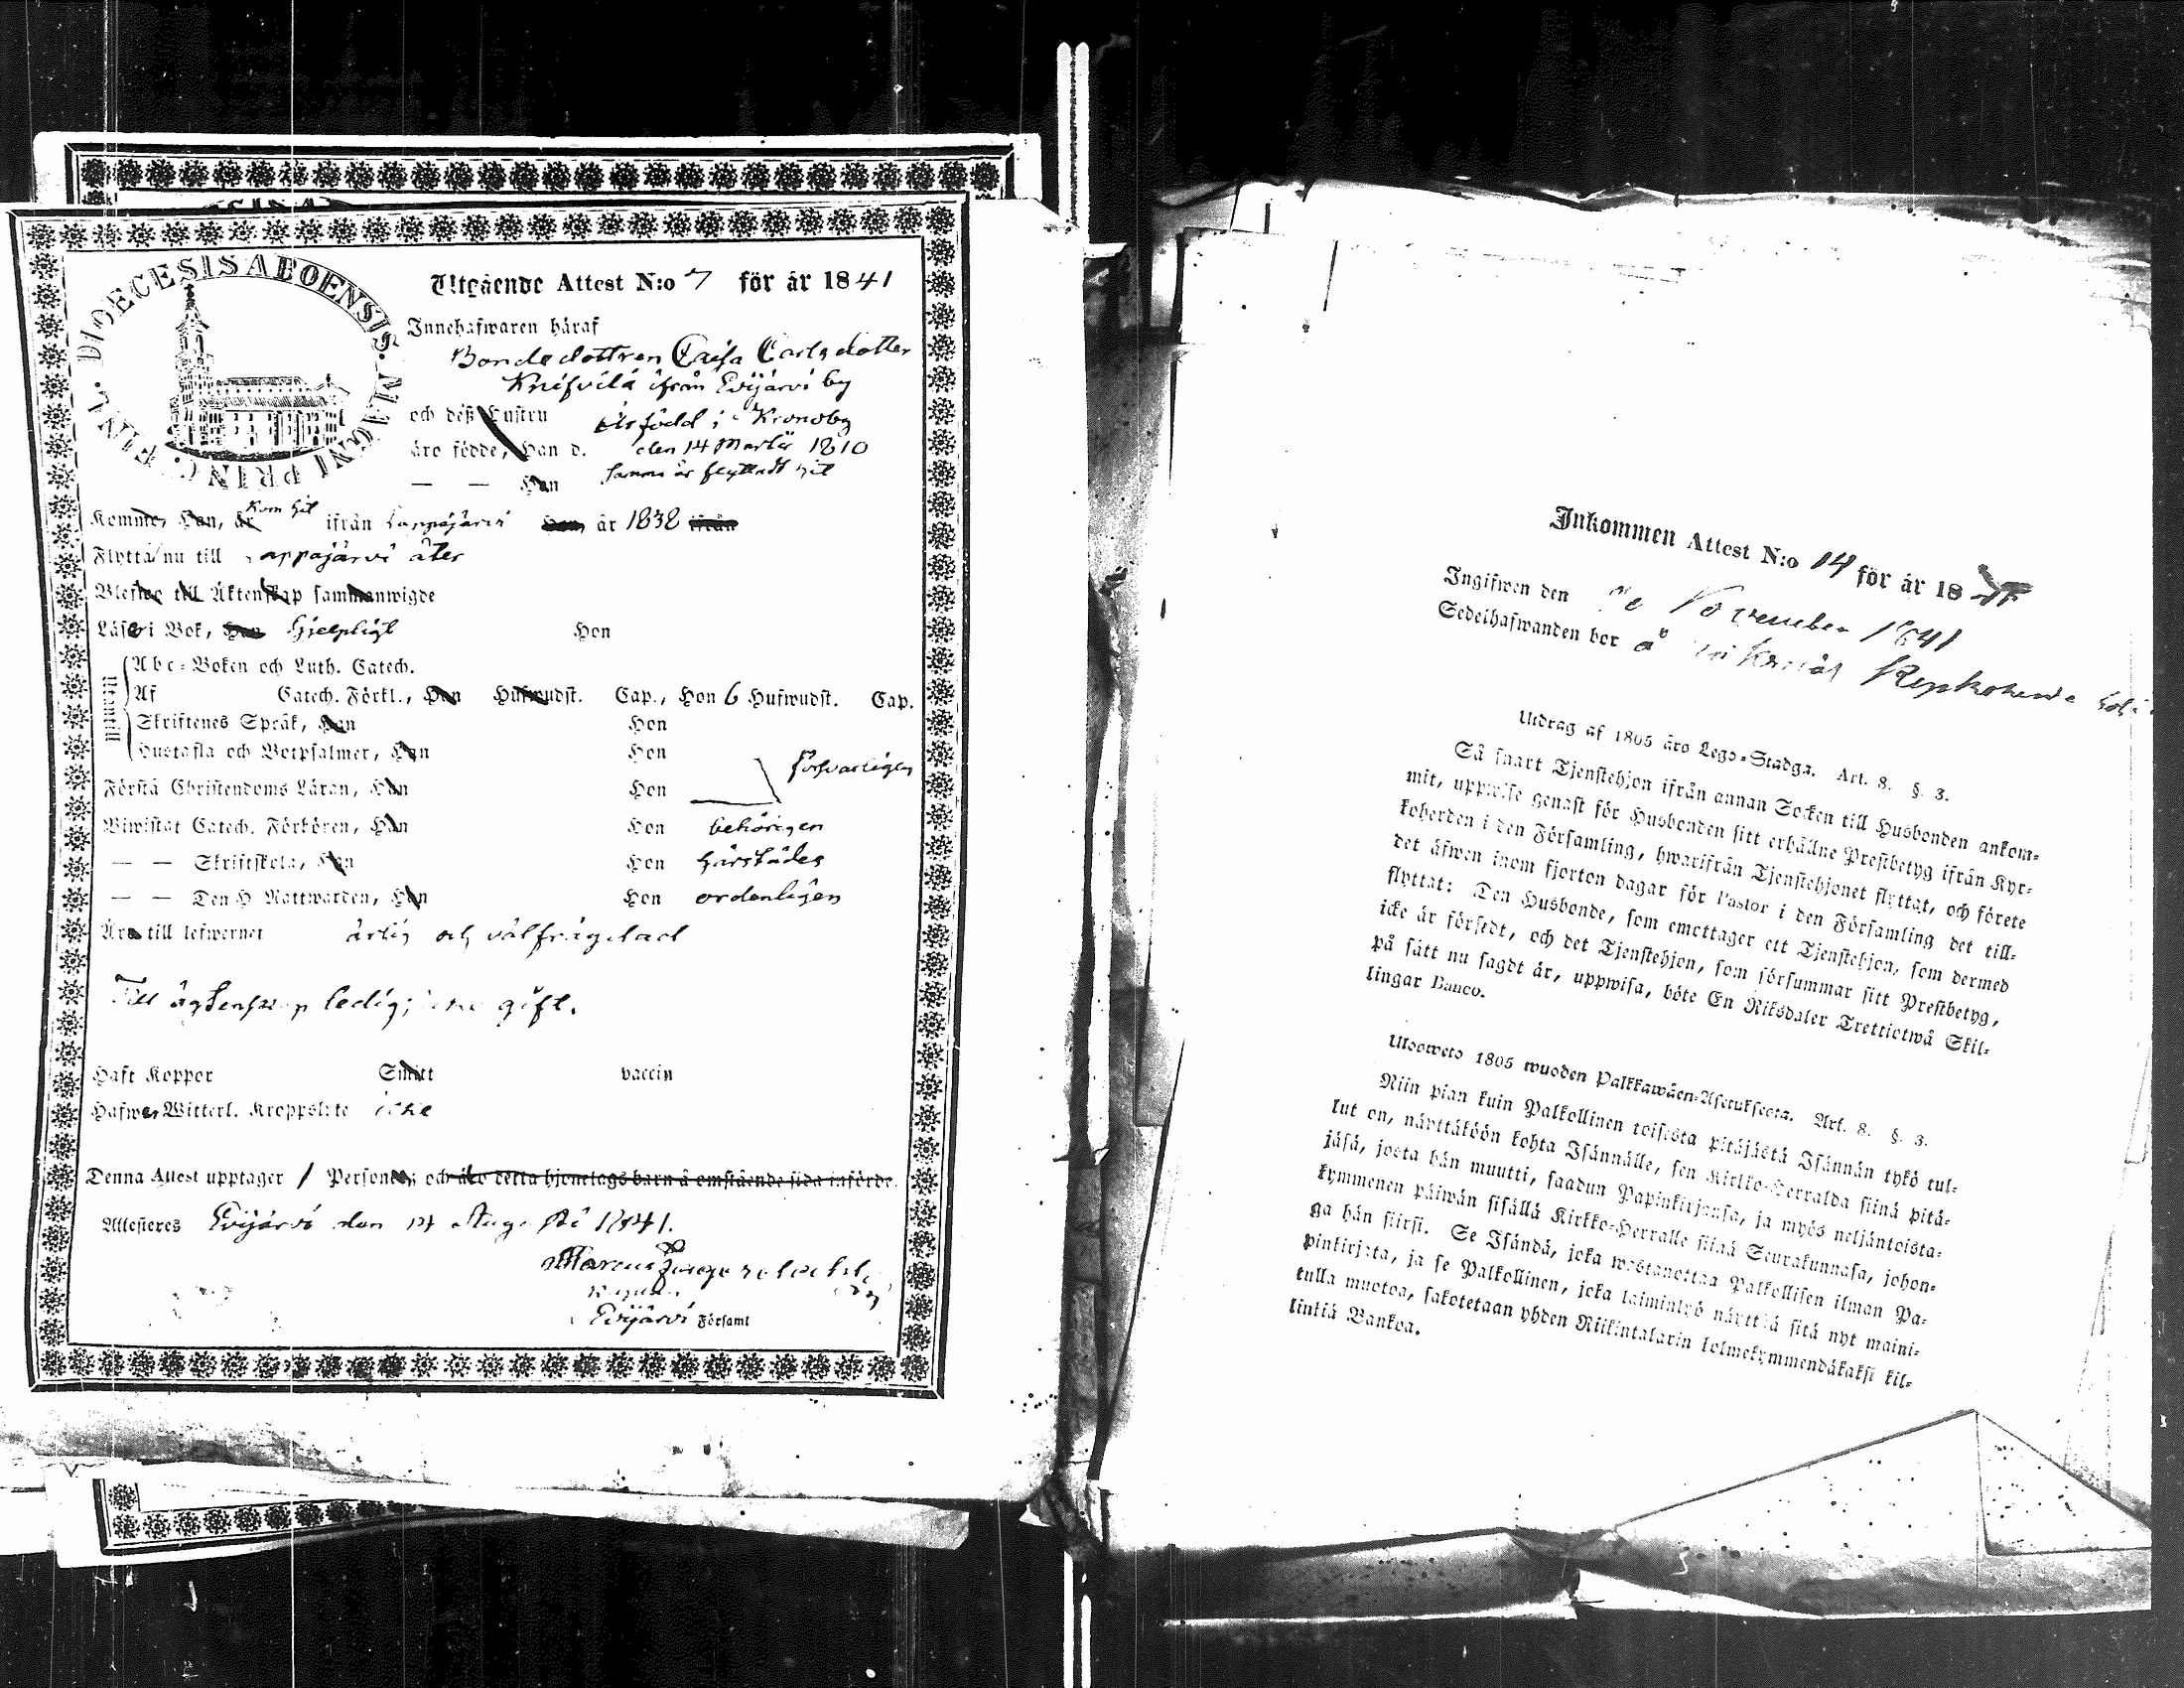 DIOECESIS ABOENSIS. MAGNI PRINC. FINL.
Utgående Attest N:o 7 för år 1841
Innehafwaren häraf
Bondedottren Caisa Carlsdotter
Knifvilä ifrån Evijärvi by
och deß Hustru är född i Kronoby
äro födde, Han d. den 14 Martii 1810
— — Hon samma år flyttadt hit
Kommo, Han, år Kom hit ifrån Lappajärvi Hon, år 1838 ifrån
Flytta nu till Lappajärvi åter
Blefwo till Äktenskap sammanwigde
Läser i Bok, Han hjelpligt Hon
Abc-Boken och Luth. Catech.
Af Catech. Förkl., Han Hufwudst. Cap., Hon 6 Hufwudst. Cap.
Skriftenes Språk, Han Hon
Hustafla och Botpsalmer, Han Hon
försvarligen
Förstå Christendoms Läran, Han Hon
Biwistat Catech. Förhören, Han Hon behörigen
— — Skriftskola, Han Hon härstädes
— — Den H Nattwarden, Han Hon ordenligen
Äro till lefwernet ärlig och välfrägdad
Till ägtenskap ledig; icke gift.
Haft Koppor Smitt vaccin
Hafwer Witterl. Kroppslyte icke
Denna Attest upptager 1 Personer; och äro detta hjonelags barn å omstående sida införde.
Attesteras Evijärvi den 14 Augusti 1841.
Marcus
Evijärvi Församl
Inkommen Attest N:o 14 för år 18
Ingifwen den November 1841
Sedelhafwanden bor å
Utdrag af 1805 års Lego-Stadga. Art. 8. §. 3.
Så snart Tjenstehjon ifrån annan Socken till Husbonden ankom-
mit, uppwise genast för Husbonden sitt erhållne Prestbetyg ifrån Kyr-
koherden i den Församling, hwarifrån Tjenstehjonet flyttat, och förete
det äfwen inom fjorton dagar för Pastor i den Församling det till-
flyttat: Den Husbonde, som emottager ett Tjenstehjon, som dermed
icke är försedt, och det Tjenstehjon, som försummar sitt Prestbetyg,
på sätt nu sagdt är, uppwisa, böte En Riksdaler Trettiotwå Skil-
lingar Banco.
Ulosweto 1805 wuoden Palkkawäen-Asetuksesta. Art. 8. §. 3.
Niin pian kuin Palkollinen toisesta pitäjästä Isännän tykö tul-
lut on, näyttäköön kohta Isännälle, sen Kirkko-Herralda siinä pitä-
jäsä, josta hän muutti, saadun Papinkirjansa, ja myös neljäntoista-
kymmenen päiwän sisällä Kirkko-Herralle siinä Seurakunnasa, johon-
ga hän siirsi. Se Isändä, joka wastanottaa Palkollisen ilman Pa-
pinkirjata, ja se Palkollinen, joka laiminlyö näyttää sitä nyt maini-
tulla muotoa, sakotetaan yhden Riikintalarin kolmekymmendäkaksi kil-
linkiä Bankoa.